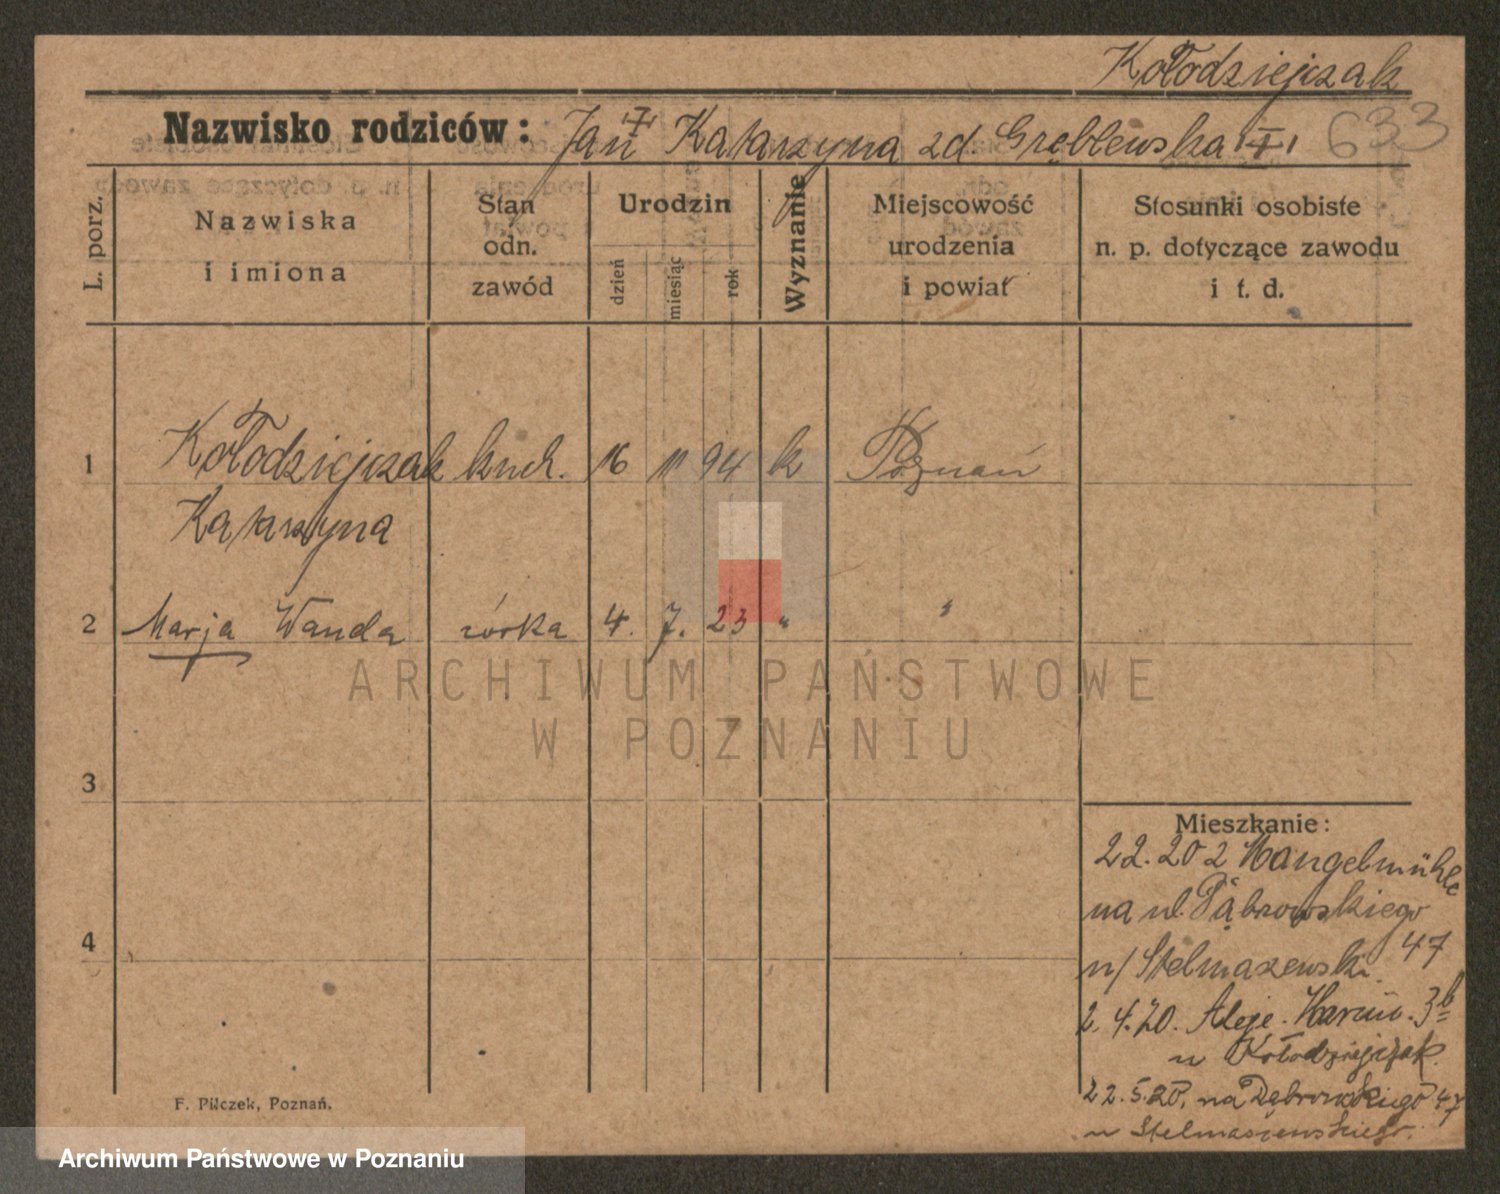 Kołodziejczak
Nazwisko rodziców: Jan Katarzyna zd. Gręblewska 633
L. porz.
Nazwiska
i imiona
Stan
odn.
zawód
Urodzin
dzień
miesiąc
rok
Wyznanie
Miejscowość
urodzenia
i powiat
Stosunki osobiste
n. p. dotyczące zawodu
i t. d.
1 Kołodziejczak kuch. 16 11 94 k Poznań
Katarzyna
2 Marja Wanda córka 4. 7. 23 " "
ARCHIWUM PAŃSTWOWE
W POZNANIU
3
4
Mieszkanie:
22.20 z Hangelmühle
na ul. Dąbrowskiego
47
n/ Stelmaszewski
2.4.20. Aleje. 3b
u Kołodziejczak.
22.5.20. na Dąbrowskiego 47
u Stelmaszewskiego.
F. Pilczek, Poznań.
Archiwum Państwowe w Poznaniu